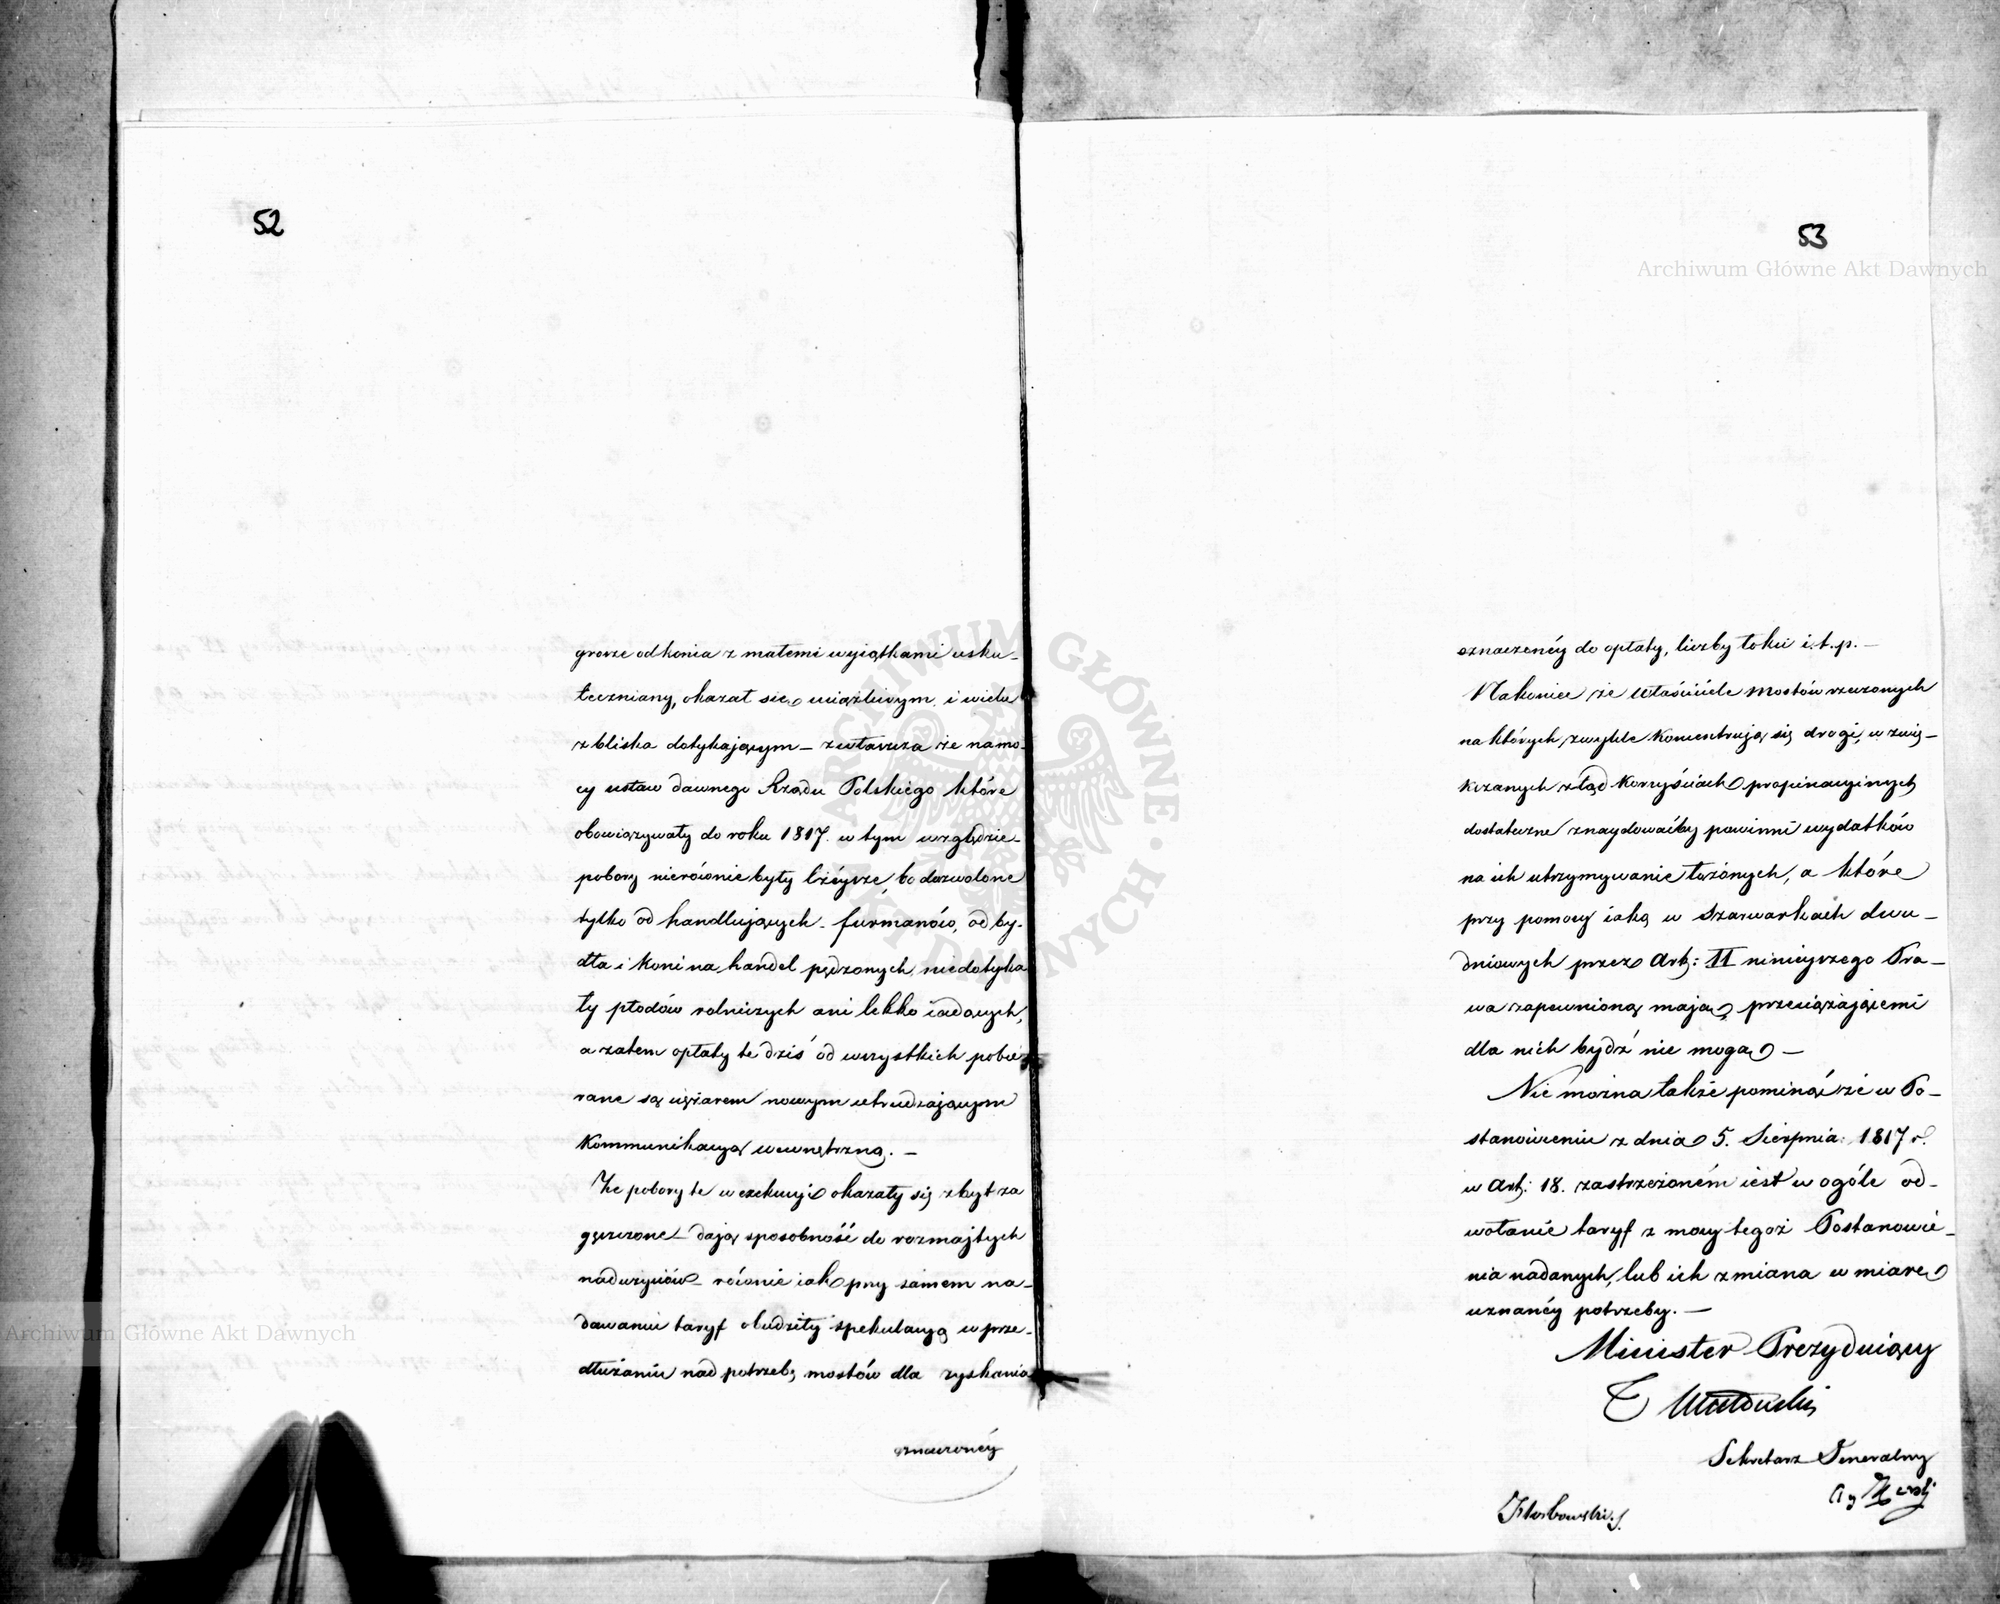 52
grosze od konia z małemi wyiątkami usku-
teczniany, okazał się uciążliwym i wielu
z bliska dotykającym – zwłaszcza że na mo-
cy ustaw dawnego Rządu Polskiego które
obowiązywały do roku 1817. w tym względzie
pobory nierównie były lżéysze, bo dozwolone
tylko od handlujących furmanów, od by-
dła i koni na handel pędzonych, niedotyka
ły płodów rolniczych ani lekko iadących,
a zatem opłaty te dziś od wszystkich pobie
rane są ciężarem nowym utrudzającym
Kommunikacyą wewnętrzną. –
Że pobory te w exekucyi okazały się zbyt za
gęszczone – dają sposobność do rozmajtych
nadużyciów – równie iak przy samem na-
dawaniu taryf obudziły spekulacyą w prze-
dłużaniu nad potrzebę mostów dla zyskania
oznaczonéy
53
Archiwum Główne Akt Dawnych
oznaczonéy do opłaty, liczby łokci i.t.p. –
Nakoniec że właściciele mostów rzeczonych
na których zwykle koncentrują się drogi, w zwię-
kszanych ztąd korzyściach propinacyinych
dostateczne znaydowaćby powinni wydatków
na ich utrzymywanie łożonych, a które
przy pomocy iaką w Szarwarkach dwu-
dniowych przez Art: II niniejszego Pra-
wa zapewnioną mają, przeciążającemi
dla nich bydź nie mogą –
Nie można także pominąć że w Po-
stanowieniu z dnia 5. Sierpnia 1817 r.
w Art: 18. zastrzeżoném iest w ogóle od-
wołanie taryf z mocy tegoż Postanowie-
nia nadanych, lub ich zmiana w miarę
uznanéy potrzeby. –
Minister Prezyduiący
T Mostowski
Sekretarz Generalny
Archiwum Główne Akt Dawnych
ARCHIWUM GŁÓWNE AKT DAWNYCH